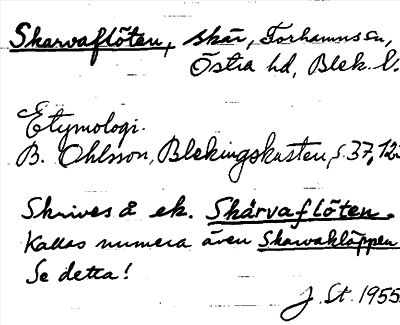 Skarvaflöten, skär, Torhamns sn,
Östra hd, Blek. l.
Etymologi.
B. Ohlsson, Blekingskusten, s. 37, 12
Skrives å ek. Skärvaflöten.
Kallas numera även Skarvaklöppen
Se detta!
J. St. 1955